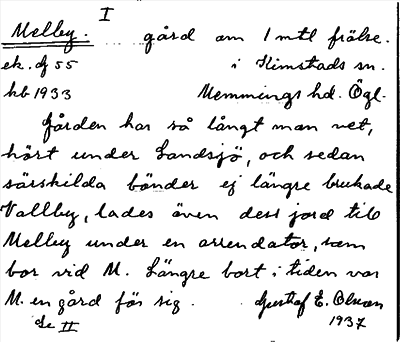 I
Melby. gård om 1 mtl frälse.
ek. df 55 i Kimstads sn.
hb 1933 Memmings hd. Ögl.
Gården har så långt man vet,
hört under Landsjö, och sedan
särskilda bönder ej längre brukade
Vallby, lades även dess jord till
Melby under en arrendator, som
bor vid M. Längre bort i tiden var
M. en gård för sig. Gustaf E. Olsson
Se II 1937